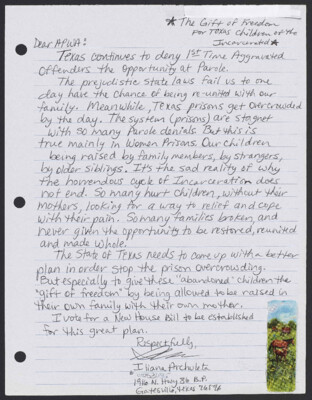 ★ The Gift of Freedom
for Texas Children of the
Incarcerated ★
Dear APWA:
Texas continues to deny 1st Time Aggravated
Offenders the opportunity at Parole.
The prejudistic state laws fail us to one
day have the chance of being re-united with our
family. Meanwhile, Texas prisons get overcrowded
by the day. The system (prisons) are stagnet
with so many Parole denials. But this is
true mainly in Women Prisons. Our children
being raised by family members, by strangers,
by older siblings. It's the sad reality of why
the horrendous cycle of Incarceration does
not end. So many hurt children, without their
mothers, looking for a way to relief and cope
with their pain. So many families broken and
never given the opportunity to be restored, reunited
and made whole.
The State of Texas needs to come up with a better
plan in order stop the prison overcrowding.
But especially to give these "abandoned" children the
"gift of freedom" by being allowed to be raised in
their own family with their own mother.
I vote for a New House Bill to be established
for this great plan.
Respectfully,
Iliana Archuleta
1916 N. Hwy 36 B.P.
Gatesville, Texas 76596